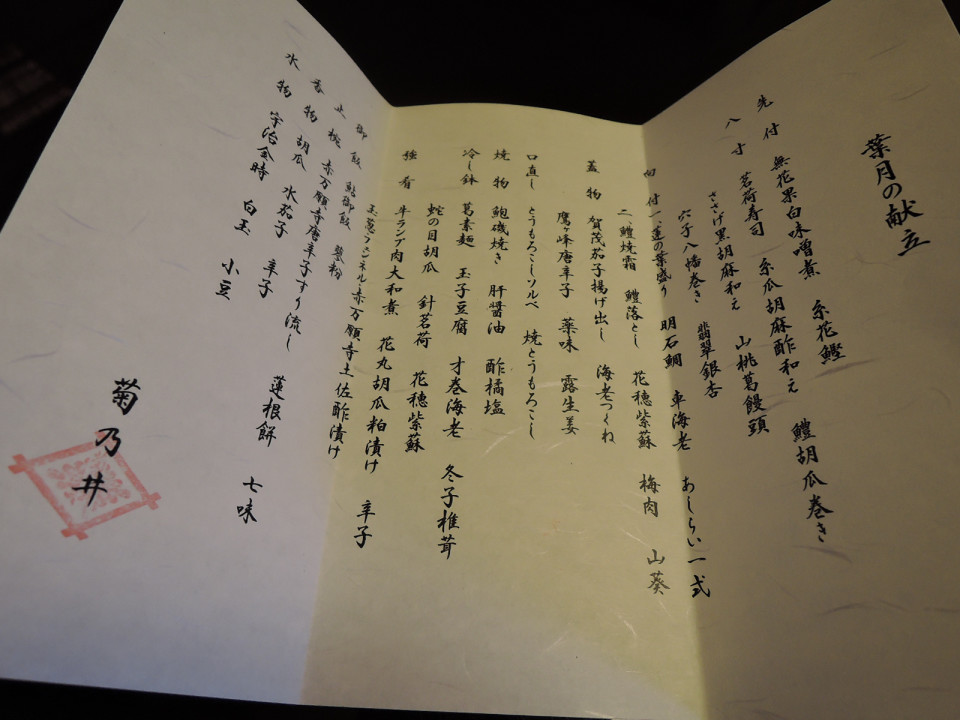 葉月の献立
先付 無花果白味噌煮 糸花鰹
八寸 茗荷寿司 糸瓜胡麻酢和え 鱧胡瓜巻き
ささげ黒胡麻和え 山桃葛饅頭
穴子八幡巻き 翡翠銀杏
向付 一、蓮の葉盛り 明石鯛 車海老 あしらい一式
二、鱧焼霜 鱧落とし 花穂紫蘇 梅肉 山葵
蓋物 賀茂茄子揚げ出し 海老つくね
鷹ヶ峰唐辛子 薬味 露生姜
口直し とうもろこしソルベ 焼とうもろこし
焼物 鮑磯焼き 肝醤油 酢橘塩
冷し鉢 葛素麺 玉子豆腐 才巻海老 冬子椎茸
蛇の目胡瓜 針茗荷 花穂紫蘇
強肴 牛ランプ肉大和煮 花丸胡瓜粕漬け 辛子
玉葱フェンネル・赤万願寺土佐酢漬け
御飯 鮎御飯 蓼粉
止椀 赤万願寺唐辛子すり流し 蓮根餅 七味
香物 胡瓜 水茄子 辛子
水物 宇治金時 白玉 小豆
菊乃井